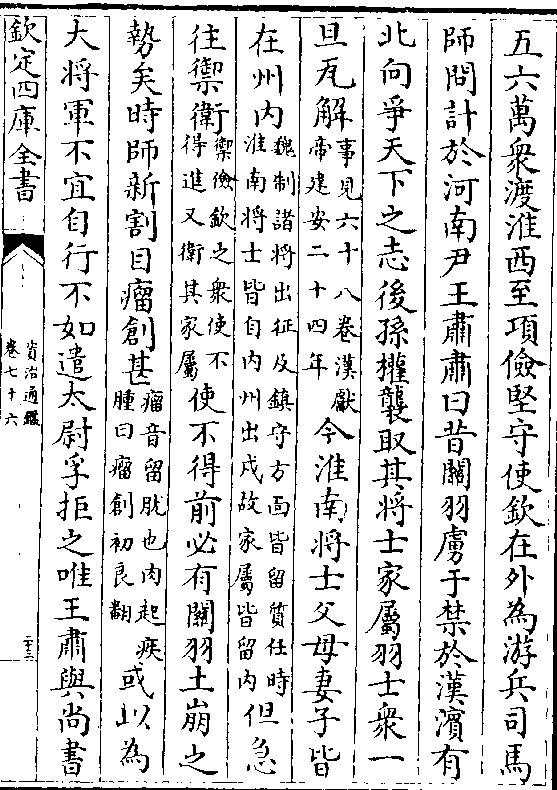 五六萬衆渡淮西至項儉堅守使欽在外為游兵司馬
師問計於河南尹王肅肅曰昔關羽虜于禁於漢濱有
北向爭天下之志後孫權襲取其將士家屬羽士衆一
旦瓦解事見六十八卷漢獻帝建安二十四年今淮南將士父母妻子皆
在州内魏制諸將出征及鎮守方面皆留質任時淮南將士皆自内州出戍故家屬皆留内但急
往禦衛禦儉欽之衆使不得進又衛其家屬使不得前必有關羽土崩之
勢矣時師新割目瘤創甚瘤音留肬也肉起疾腫曰瘤創初良翻或以為
大將軍不宜自行不如遣太尉孚拒之唯王肅與尚書
欽定四庫全書
資治通鑑
卷七十六
二十三